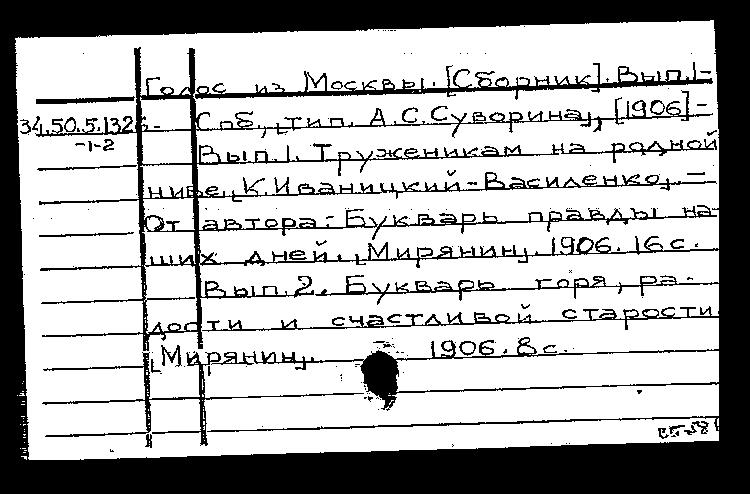 Голос из Москвы. [Сборник]. Вып.1-
34.50.5.1326- Спб, ˻тип. А.С.Суворина˼, [1906]-
-1-2
Вып.1. Труженикам на родной
ниве. ˻К.Иваницкий-Василенко˼. –
От автора: Букварь правды на-
ших дней. ˻Мирянин˼. 1906. 16 с.
Вып.2. Букварь горя, ра-
дости и счастливой старости
˻Мирянин˼. 1906. 8 с.